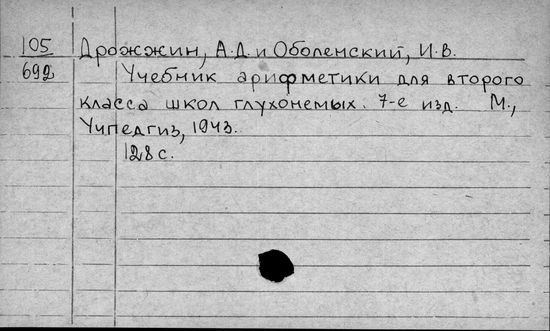 105 Дрожжин, А.Д. и Оболенский, И.В.
692 Учебник арифметики для второго
класса школ глухонемых. 7-е изд. М.,
Учпедгиз, 1943.
128 с.